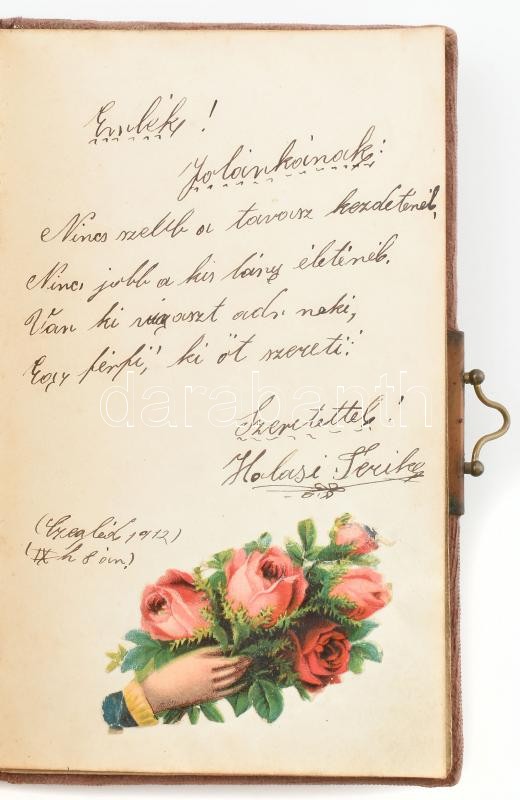 Emlék!
Jolánkának:
Nincs szebb a tavasz kezdeténél,
Nincs jobb a kis lány életénél.
Van ki vigaszt ad neki,
Egy férfi, ki őt szereti!
Szeretettel!
Halasi Terike
(Czegléd 1912)
(IX h 8 án)
darabanth